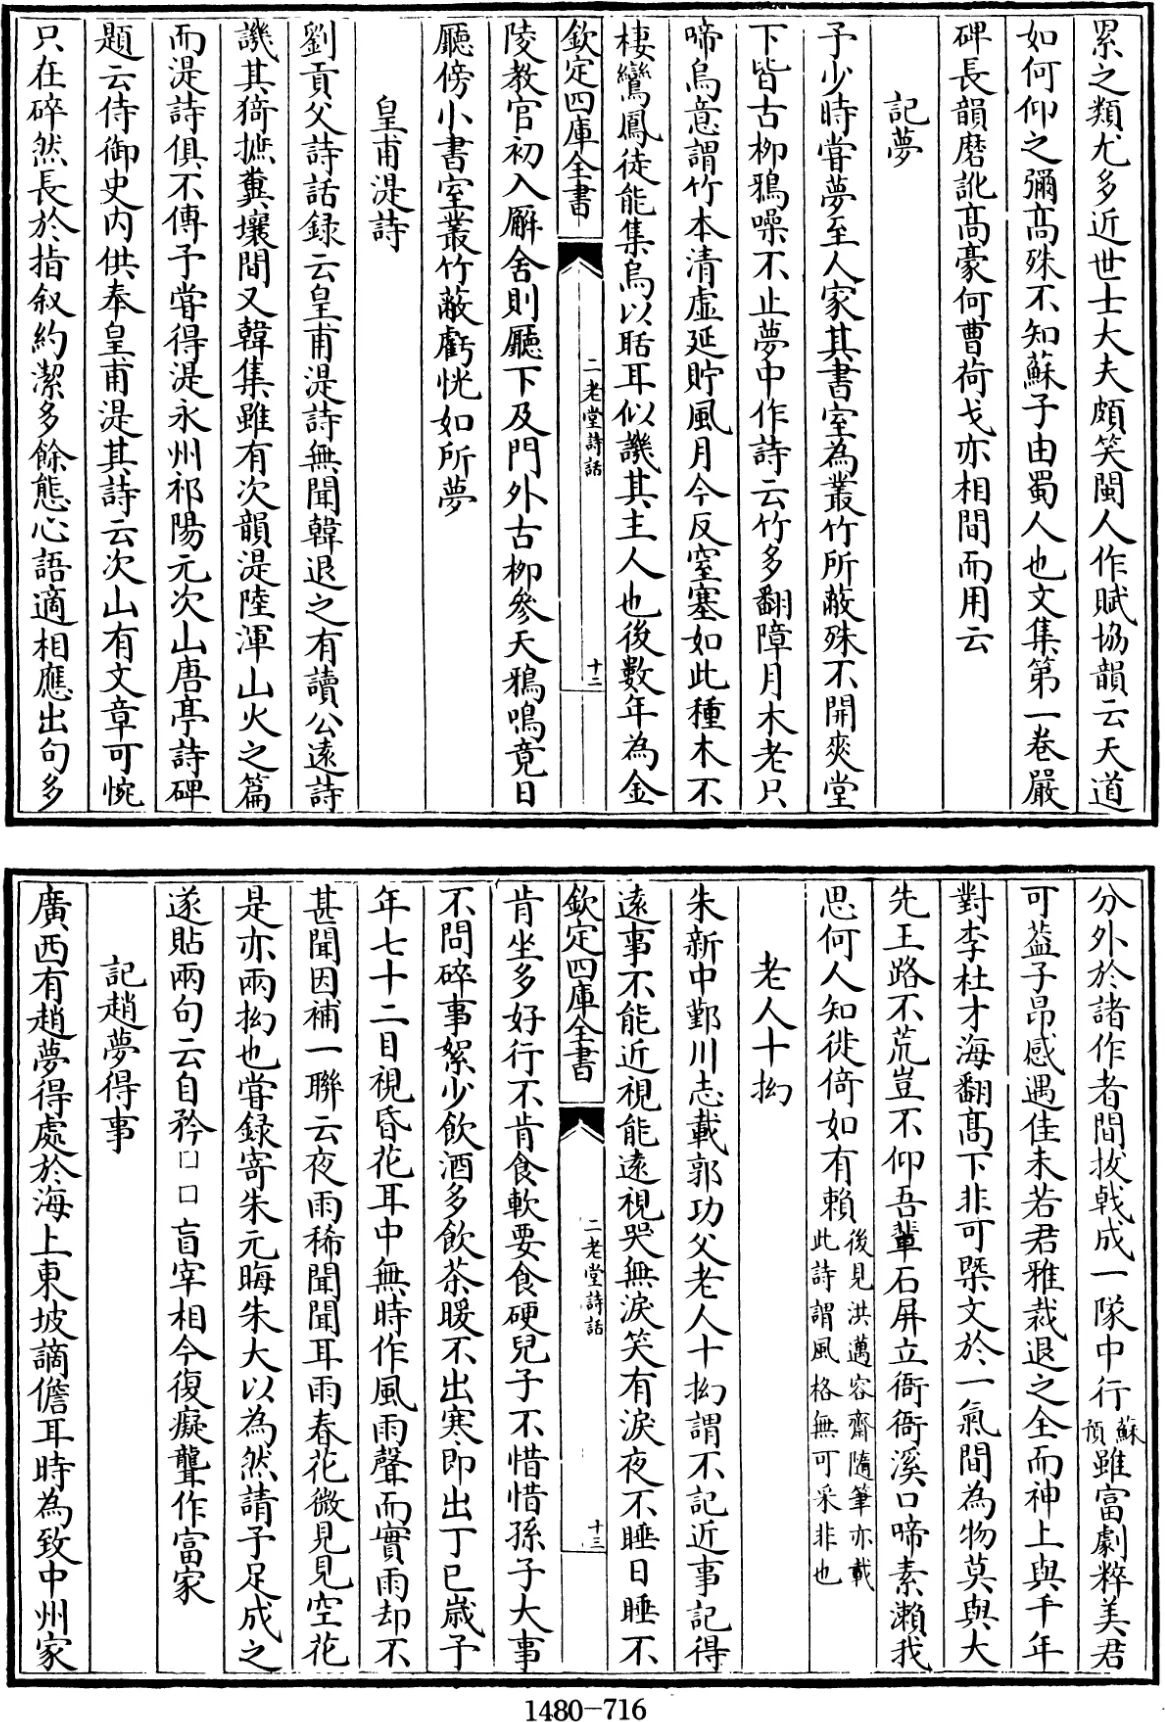 累之類尤多近世士大夫頗笑閩人作賦協韻云天道
如何仰之彌髙殊不知蘇子由蜀人也文集第一卷嚴
碑長韻磨訛髙豪何曹荷戈亦相間而用云
記夢
予少時嘗夢至人家其書室為叢竹所蔽殊不開爽堂
下皆古栁鴉噪不止夢中作詩云竹多翻障月木老只
啼烏意謂竹本清虛延貯風月今反窒塞如此種木不
棲鸞鳳徒能集烏以聒耳似譏其主人也後數年為金
欽定四庫全書
二老堂詩話
十二
陵教官初入廨舍則廳下及門外古栁參天鴉鳴竟日
廳傍小書室叢竹蔽虧恍如所夢
皇甫湜詩
劉貢父詩話録云皇甫湜詩無聞韓退之有讀公逺詩
譏其掎摭糞壤間又韓集雖有次韻湜陸渾山火之篇
而湜詩俱不傳予嘗得湜永州祁陽元次山唐亭詩碑
題云侍御史内供奉皇甫湜其詩云次山有文章可惋
只在碎然長於指叙約潔多餘態心語適相應出句多
分外於諸作者間拔㦸成一隊中行蘇預雖富劇粹美君
可葢子昂感遇佳未若君雅裁退之全而神上與千年
對李杜才海翻髙下非可槩文於一氣間為物莫與大
先王路不荒豈不仰吾輩石屏立衙衙溪口啼素瀨我
思何人知徙倚如有賴後見洪邁容齋隨筆亦載此詩謂風格無可采非也
老人十拗
朱新中鄞川志載郭功父老人十拗謂不記近事記得
逺事不能近視能逺視哭無淚笑有淚夜不睡日睡不
欽定四庫全書
二老堂詩話
十三
肯坐多好行不肯食軟要食硬兒子不惜惜孫子大事
不問碎事絮少飲酒多飲茶暖不出寒即出丁巳歲予
年七十二目視昏花耳中無時作風雨聲而實雨却不
甚聞因補一聯云夜雨稀聞聞耳雨春花微見見空花
是亦兩拗也嘗録寄朱元晦朱大以為然請予足成之
遂貼兩句云自矜□□盲宰相今復癡聾作富家
記趙夢得事
廣西有趙夢得處於海上東坡謫儋耳時為致中州家
1480-716